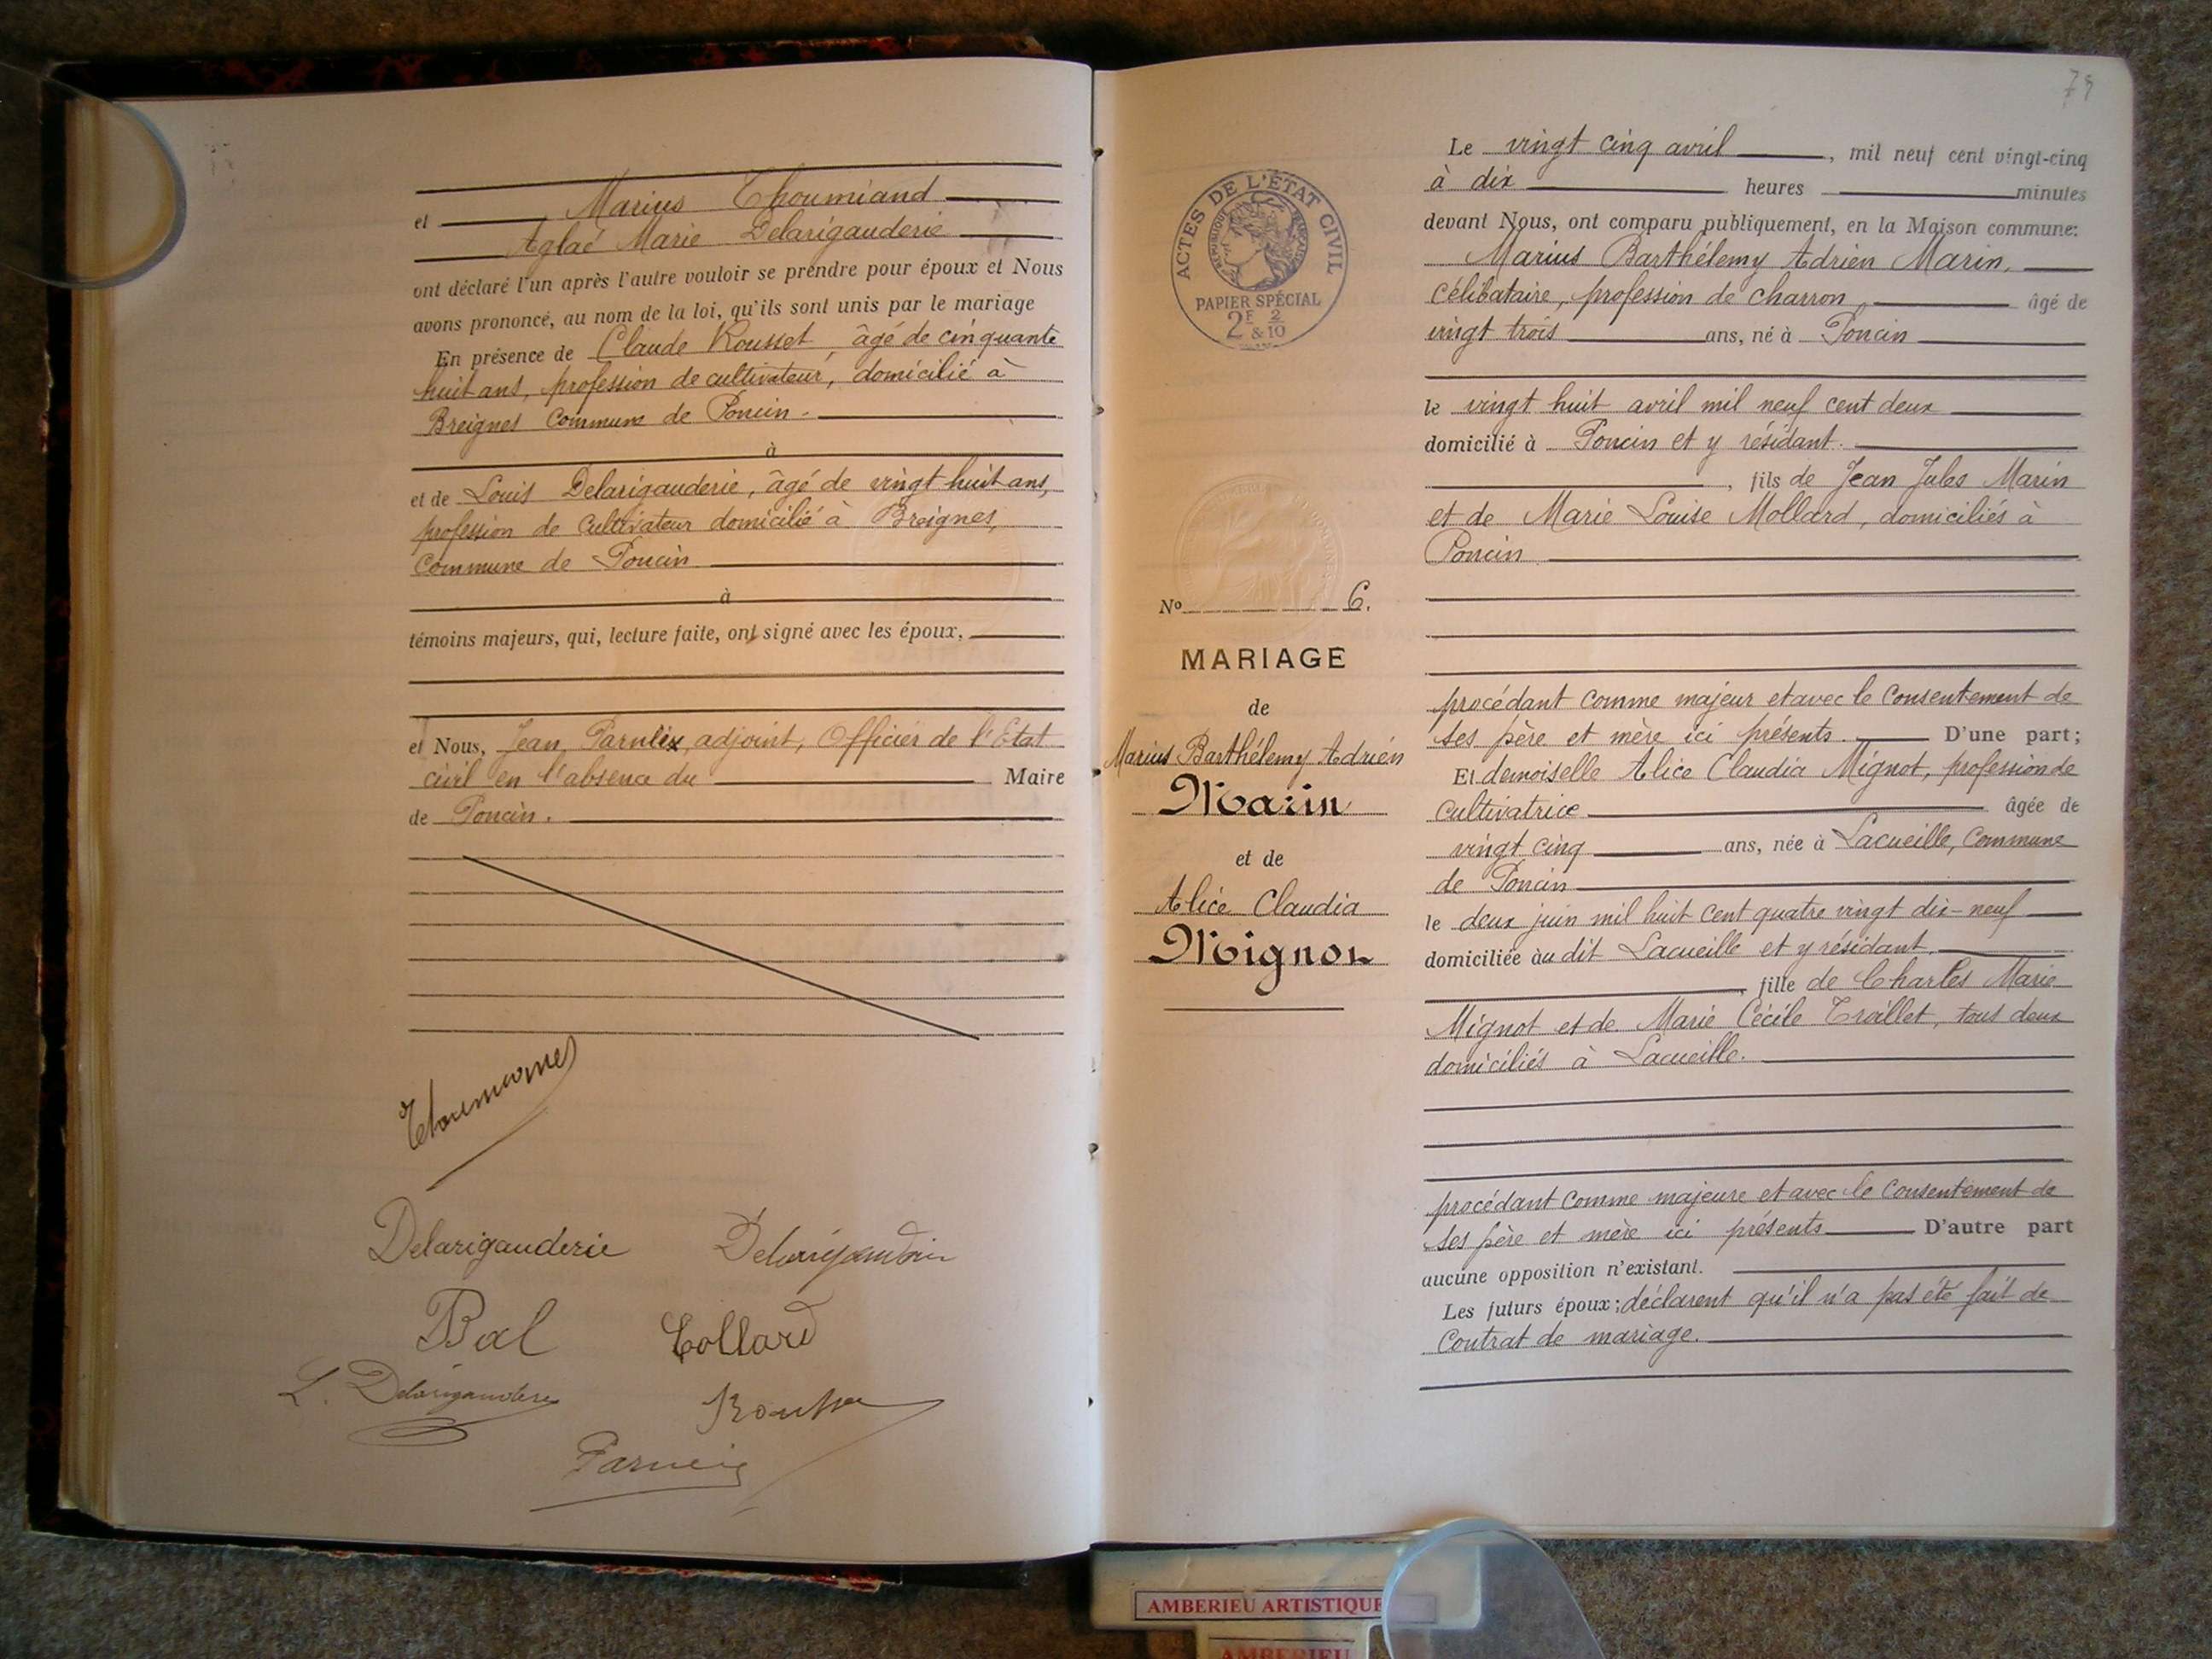 et Marius Thoumiand
Aglaé Marie Delarigauderie
ont déclaré l'un après l'autre vouloir se prendre pour époux et Nous
avons prononcé, au nom de la loi, qu'ils sont unis par le mariage
En présence de Claude Rousset, âgé de cinquante
huit ans, profession de cultivateur, domicilié à
Breignes Commune de Poncin.
à
et de Louis Delarigauderie, âgé de vingt huit ans,
profession de Cultivateur domicilié à Breignes,
Commune de Poncin
à
témoins majeurs, qui, lecture faite, ont signé avec les époux,
et Nous, Jean adjoint, Officier de l'Etat
civil en l'absence du Maire
de Poncin.
Delarigauderie
Bal Collard
L. Delarigauderie
ACTES DE L'ÉTAT CIVIL
PAPIER SPÉCIAL
2F 2
& 10
No 6.
MARIAGE
de
Marius Barthélemy Adrien
Marin
et de
Alice Claudia
Mignon
Le vingt cinq avril, mil neuf cent vingt-cinq
à dix heures minutes
devant Nous, ont comparu publiquement, en la Maison commune:
Marius Barthélemy Adrien Marin,
célibataire, profession de charron, âgé de
vingt trois ans, né à Poncin
le vingt huit avril mil neuf cent deux
domicilié à Poncin et y résidant.
, fils de Jean Jules Marin
et de Marie Louise Mollard, domiciliés à
Poncin
procédant comme majeur et avec le Consentement de
ses père et mère ici présents. D'une part;
Et demoiselle Alice Claudia Mignot, profession de
cultivatrice âgée de
vingt cinq ans, née à Lacueille, Commune
de Poncin
le deux juin mil huit cent quatre vingt dix-neuf
domiciliée àu dit Lacueille et y résidant.
, fille de Charles Marie
Mignot et de Marie Cécile Troillet, tous deux
domiciliés à Lacueille.
procédant Comme majeure et avec le Consentement de
ses père et mère ici présents D'autre part
aucune opposition n'existant.
Les futurs époux; déclarent qu'il n'a pas été fait de
Contrat de mariage.
AMBERIEU ARTISTIQUE
AMBERIEU